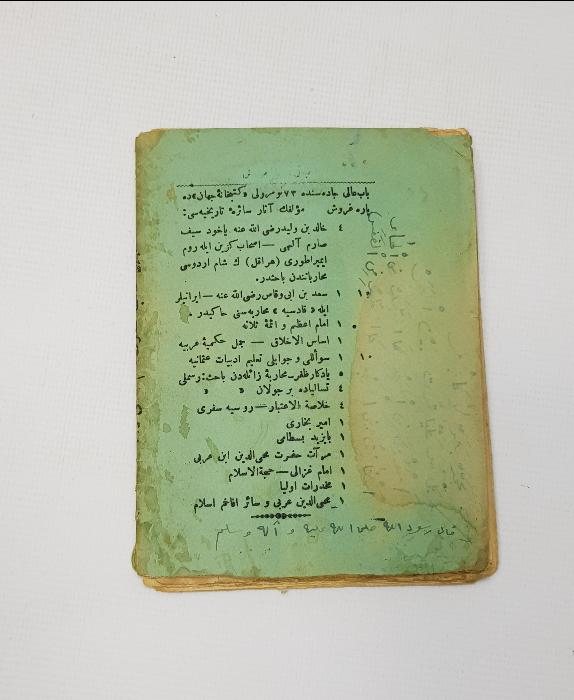 باب عالی جاده‌سنده ٧٣ نومرولی «کتبخانهٔ جهان» ده
پاره غروش مؤلفك آثار سائرهٔ تاریخیه‌سی:
٤ خالد بن ولید رضی الله عنه یاخود سیف
صارم آلهی — اصحاب کزین ایله روم
ایمپراطوری (هراقل) ك شام اردوسی
محارباتندن باحثدر.
١٠ ١ سعد بن ابی وقاص رضی الله عنه — ایرانیلر
ایله « قادسیه » محاربه‌سنی حاکیدر.
١ امام اعظم و ائمهٔ ثلاثه
١ اساس الاخلاق — جمل حکمیهٔ عربیه
١٠ ١ سوآللی و جوابلی تعلیم ادبیات عثمانیه
٥ یادکار ظفر — محاربهٔ زائله‌دن باحث: رسملی
٤ تسالیاده بر جولان » »
٤ خلاصة الاعتبار — روسیه سفری
١ امیر بخاری
١ بایزید بسطامی
١ مرآت حضرت محی الدین ابن عربی
١ امام غزالی — حجة الاسلام
١ مخدرات اولیا
١ محی الدین عربی و سائر افاخم اسلام
قال رسول الله صلى الله عليه و آله وسلم